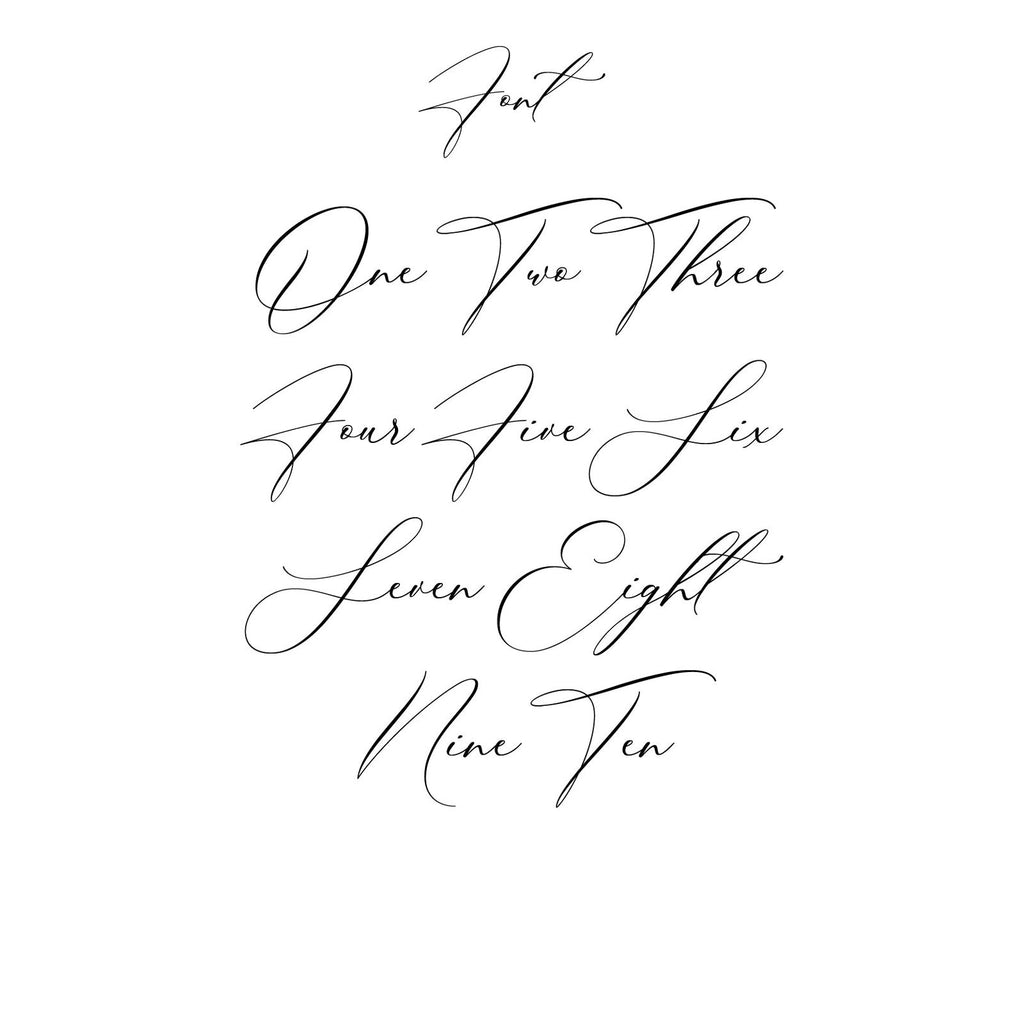 Font
One Two Three
Four Five Six
Seven Eight
Nine Ten